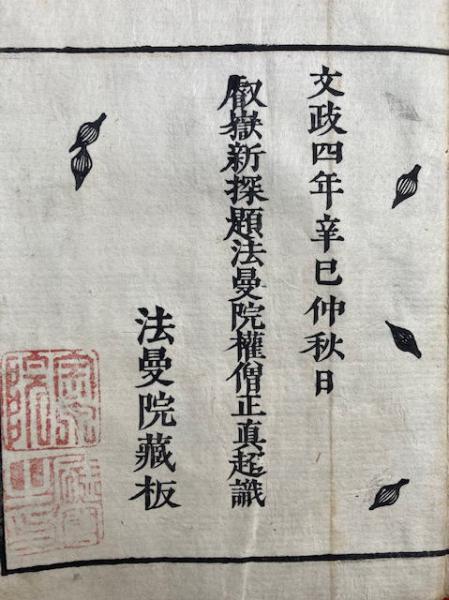 文政四年辛巳仲秋日
叡嶽新探題法曼院權僧正真超識
法曼院藏板